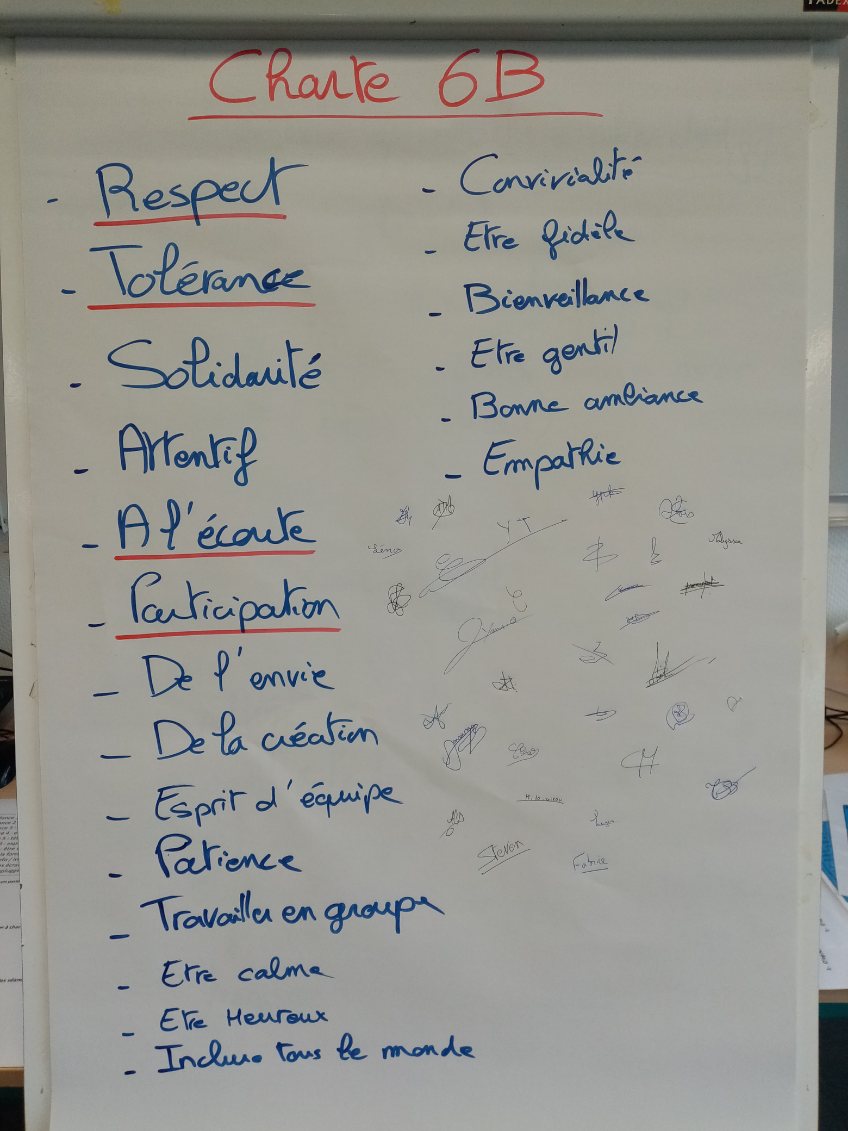 Charte 6B
- Respect
- Tolérance
- Solidarité
- Attentif
- A l'écoute
- Participation
- De l'envie
- De la création
- Esprit d'équipe
- Patience
- Travailler en groupe
- Etre calme
- Etre Heureux
- Inclure tous le monde
- Convivialité
- Etre fidèle
- Bienveillance
- Etre gentil
- Bonne ambiance
- Empathie
YT
Steven
Fabrice